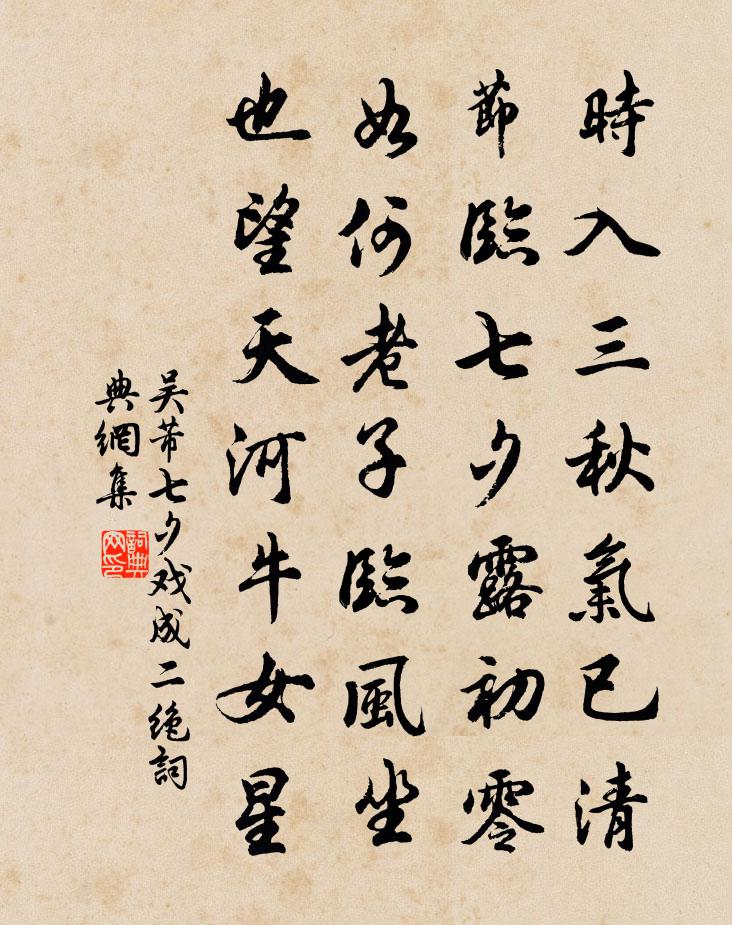 時入三秋氣已清
節臨七夕露初零
如何老子臨風坐
也望天河牛女星
吴芾七夕戏成二绝詞
典網集
詞典
网印